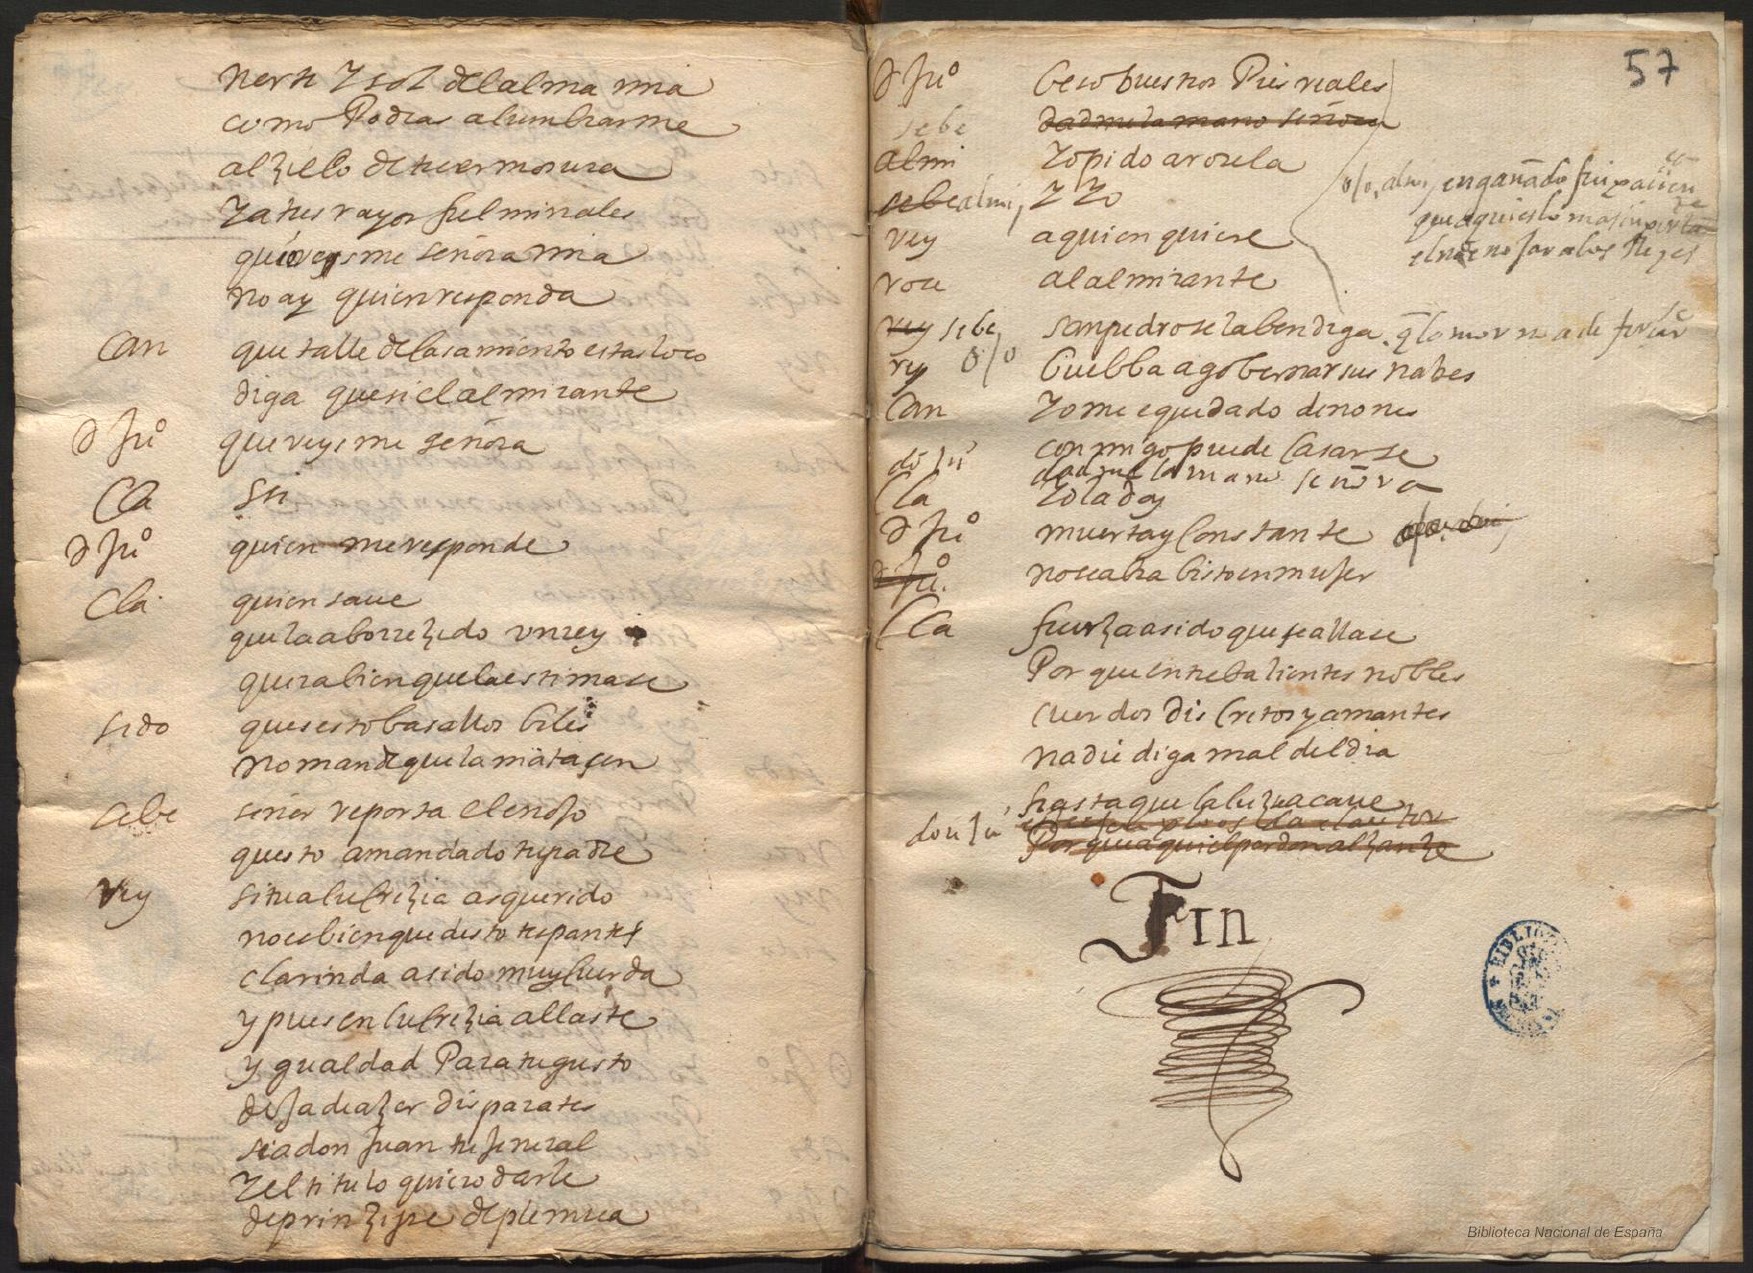 verte y sol del alma mia
como Podras alumbrarme
al zielo de tu ermosura
y a tus rayos fulminales
que oyesme señora mia
no ay quien responda
Can que talle de casamiento estas loco
diga que si el almirante
d Juº que oyesme señora
Cla Si
d Juº quien me responde
Cla quien saue
que la aborrezido un rey
quera bien que la estimase
Sido ques esto basallos biles
no mande que la matasen
Sebe señor reporta el enojo
questo a mandado tu padre
Rey si tu a lucrezia as querido
no es bien que desto te espantes
clarinda a sido muy cuerda
y pues en lucrezia allaste
y gualdad Para tu gusto
deja de azer disparates
sea don Juan tu jeneral
y el titulo quiero darle
de prinzipe de
57
d Juº beso buestros Pies reales
sebe dadme la mano señora
almi yo pido a rosela
sebe almi y yo
engañado fui
que aqui es lo mas
el no enojar a los Reyes
rey a quien quiere
rose al almirante
rey sebe san pedro se la bendiga
rey buelba a gobernar sus nabes
Can yo me e quedado de nones
conmigo puede Casarse
do Ju dadme la mano señora
Cla yo la doy
d Juº muerta y Constante
d Juº no se abra bisto en mujer
Cla fuerza a sido que se allase
Por que entre balientes nobles
cuerdos discretos y amantes
nadie diga mal del dia
hasta que la luz se acaue
don Ju
Por que aqui el perdon alcanze
Fin
BIBLIO
Biblioteca Nacional de España